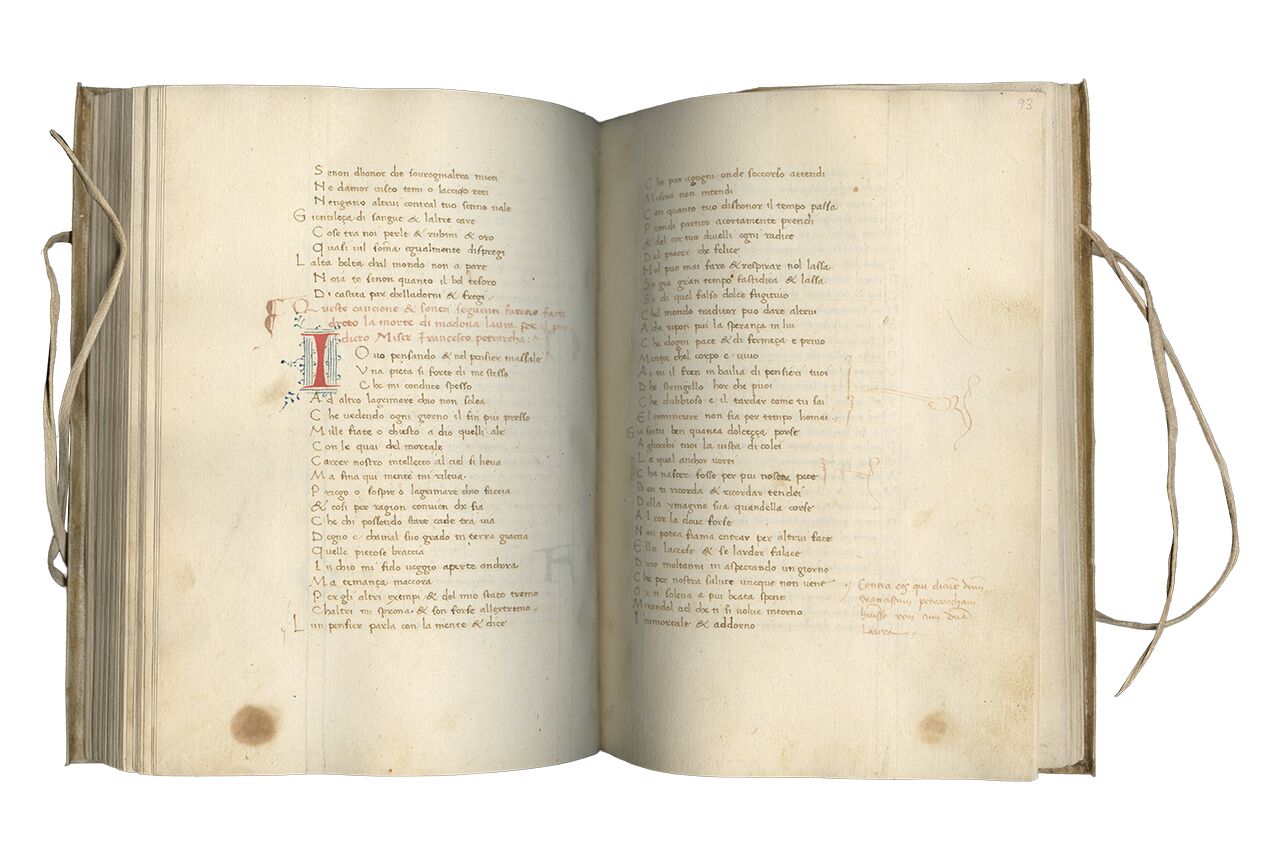 Senon dhonor che sourogmaltra mieti
Ne damor uisco temi o lacci o reti
Nengano altrui contral tuo senno uale
Gientileça di sangue & laltre care
Cose tra noi perle & rubini & oro
Quasi uil soma egualmente dispregi
Lalta belta chal mondo non a pare
Noia te senon quanto il bel tesoro
Di castita par chelladorni & fregi
Queste cancione & soneti seguenti furono facti
drieto la morte di madona laura per el
dicto Miser Francesco petrarcha
IO uo pensando & nel pensier massale
Vna pieta si forte di me stesso
Che mi conduce spesso
Ad altro lagrimare chio non solea
Che uedendo ogni giorno il fin piu presso
Mille fiate o chiesto a dio quelli ale
Con le quai del mortale
Carcer nostro intellecto al ciel si lieua
Ma fina qui niente mi rileua
Priego o sospiro o lagrimare chio faccia
& cosi per ragion conuien che sia
Che chi possendo stare cade tra uia
Degno e chainal suo grado in terra giaccia
Quelle pietose braccia
In chio mi fido ueggio aperte anchora
Ma temança maccora
Per gli altri exempi & del mio stato tremo
Chaltri mi sprona & son forse allextremo
Lun pensier parla con la mente & dice
93
Che pur agogni onde soccorso attendi
Misera non intendi
Con quanto tuo dishonor il tempo passa
Prendi partito acortamente prendi
& del cor tuo diuelli ogni radice
Del piacer che felice
Nol puo mai fare & respirar nol lassa
Se gia gran tempo fastidita & lassa
Se di quel falso dolce fugitiuo
Chel mondo traditor puo dare altrui
A che ripon piu la sperança in lui
Che dogni pace & di fermeça e priuo
Mentre chel corpo e uiuo
Ai tu il fren in bailia di pensieri tuoi
Dhe stringello hor che puoi
Che dubbioso e il tardar come tu sai
El cominciare non fia per tempo homai
Gia sai tu ben quanta dolceçça porse
Agliocchi tuoi la uista di colei
La qual anchor uorrei
Cha nascer fosse per piu nostra pace
Ben ti ricorda & ricordar tendei
Della ymagine sua quandella corse
Al cor la doue forse
Non potea fiama entrar per altrui face
Ella laccese & se lardor falace
Duro moltanni in aspectando un giorno
Che per nostra salute unqque non uene
Or ti solleua a piu beata spene
Mirandol ciel che ti si uolue intorno
Immortale & addorno
Contra eos qui dicunt dnm
Franciscum petrarcham
huisse rem cum dna
Laura